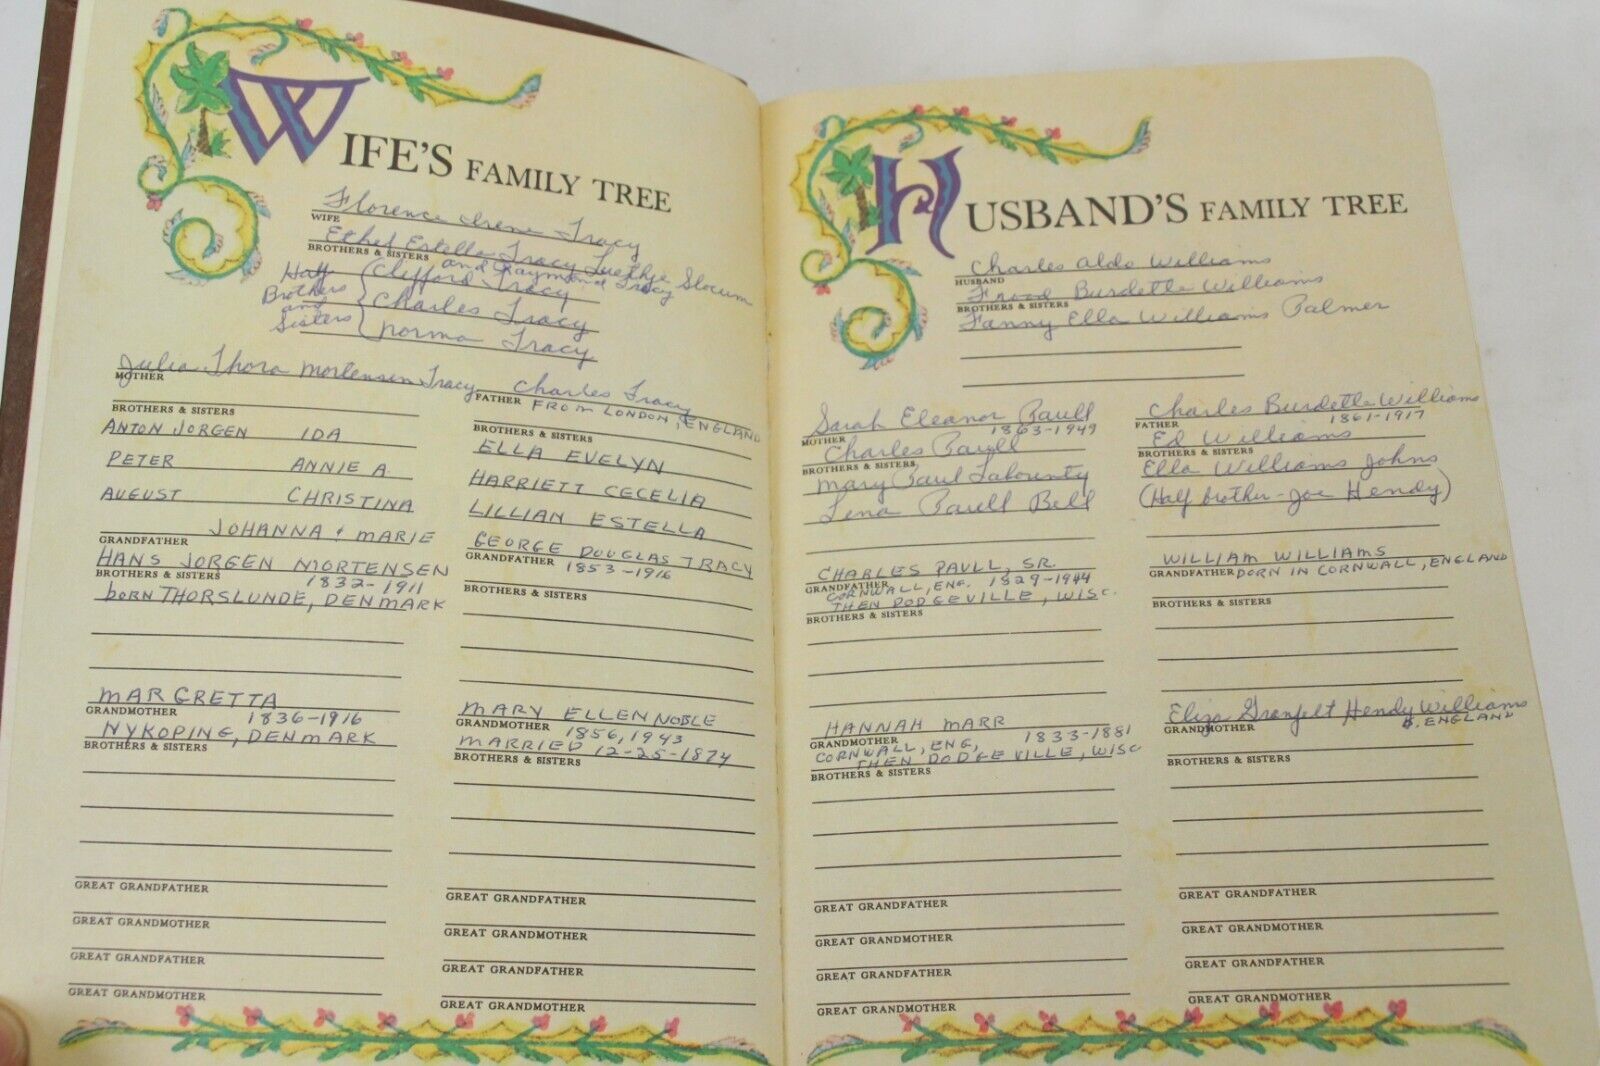 WIFE'S FAMILY TREE
Florence Irene Tracy
WIFE
Ethel Estella Tracy Luethje Slocum
BROTHERS & SISTERS
and Raymond Tracy
Half Brothers and Sisters
Clifford Tracy
Charles Tracy
Norma Tracy
Julia Thora Mortensen Tracy
MOTHER
BROTHERS & SISTERS
ANTON JORGEN IDA
PETER ANNIE A.
AUGUST CHRISTINA
JOHANNA & MARIE
GRANDFATHER
HANS JORGEN MORTENSEN
BROTHERS & SISTERS
1832-1911
born THORSLUNDE, DENMARK
MARGRETTA
GRANDMOTHER
1836-1916
NYKOPING, DENMARK
BROTHERS & SISTERS
GREAT GRANDFATHER
GREAT GRANDMOTHER
GREAT GRANDFATHER
GREAT GRANDMOTHER
Charles Tracy
FATHER
FROM LONDON, ENGLAND
BROTHERS & SISTERS
ELLA EVELYN
HARRIETT CECELIA
LILLIAN ESTELLA
GEORGE DOUGLAS TRACY
GRANDFATHER
1853-1916
BROTHERS & SISTERS
MARY ELLEN NOBLE
GRANDMOTHER
1856, 1943
MARRIED 12-25-1874
BROTHERS & SISTERS
GREAT GRANDFATHER
GREAT GRANDMOTHER
GREAT GRANDFATHER
GREAT GRANDMOTHER
HUSBAND'S FAMILY TREE
Charles Aldo Williams
HUSBAND
Burdette Williams
BROTHERS & SISTERS
Fanny Ella Williams Palmer
Sarah Eleanor Paull
MOTHER
1863-1949
Charles Paull
BROTHERS & SISTERS
Mary Paul Labounty
Lena Paull Bell
CHARLES PAULL, SR.
GRANDFATHER
CORNWALL, ENG. 1829-1944
THEN DODGEVILLE, WISC.
BROTHERS & SISTERS
HANNAH MARR
GRANDMOTHER
1833-1881
CORNWALL, ENG,
THEN DODGEVILLE, WISC
BROTHERS & SISTERS
GREAT GRANDFATHER
GREAT GRANDMOTHER
GREAT GRANDFATHER
GREAT GRANDMOTHER
Charles Burdette Williams
FATHER
1861-1917
Ed Williams
BROTHERS & SISTERS
Ella Williams Johns
(Half brother - Joe Hendy)
WILLIAM WILLIAMS
GRANDFATHER
BORN IN CORNWALL, ENGLAND
BROTHERS & SISTERS
Eliza Hendy Williams
GRANDMOTHER
B. ENGLAND
BROTHERS & SISTERS
GREAT GRANDFATHER
GREAT GRANDMOTHER
GREAT GRANDFATHER
GREAT GRANDMOTHER